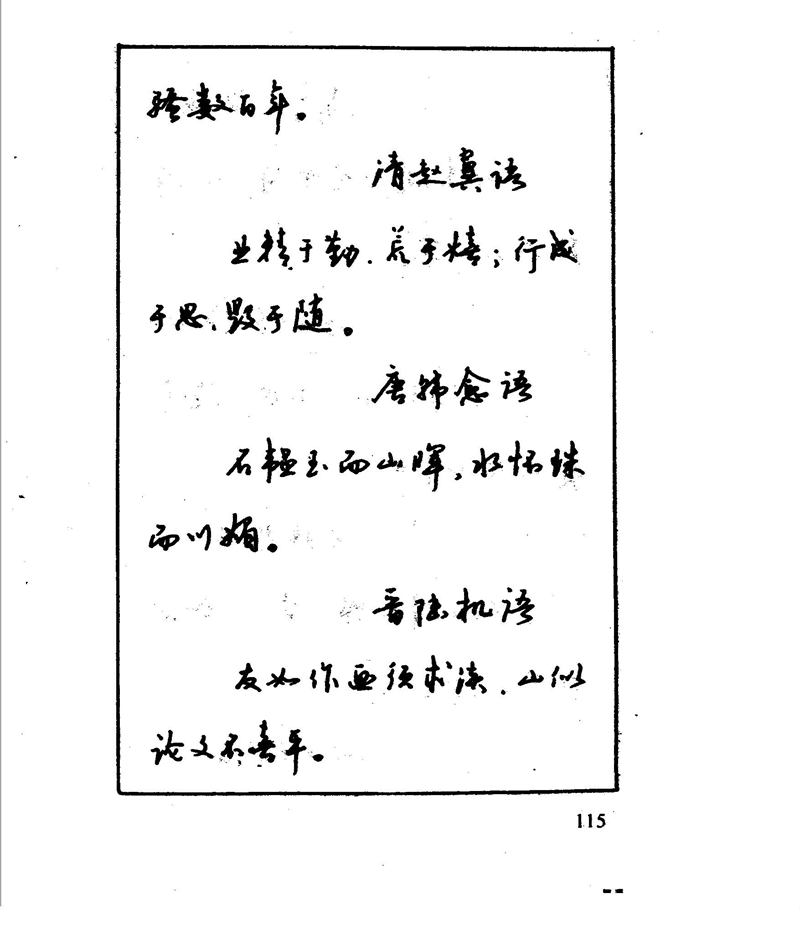 骚数百年。
清赵翼语
业精于勤，荒于嬉；行成
于思，毁于随。
唐韩愈语
石韫玉而山晖，水怀珠
而川媚。
晋陆机语
友如作画须求淡，山似
论文不喜平。
115